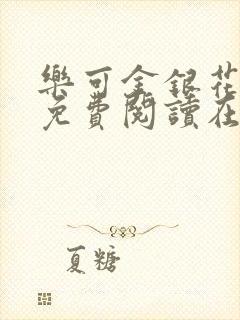 樂可金銀花
免費閱讀在
夏糖